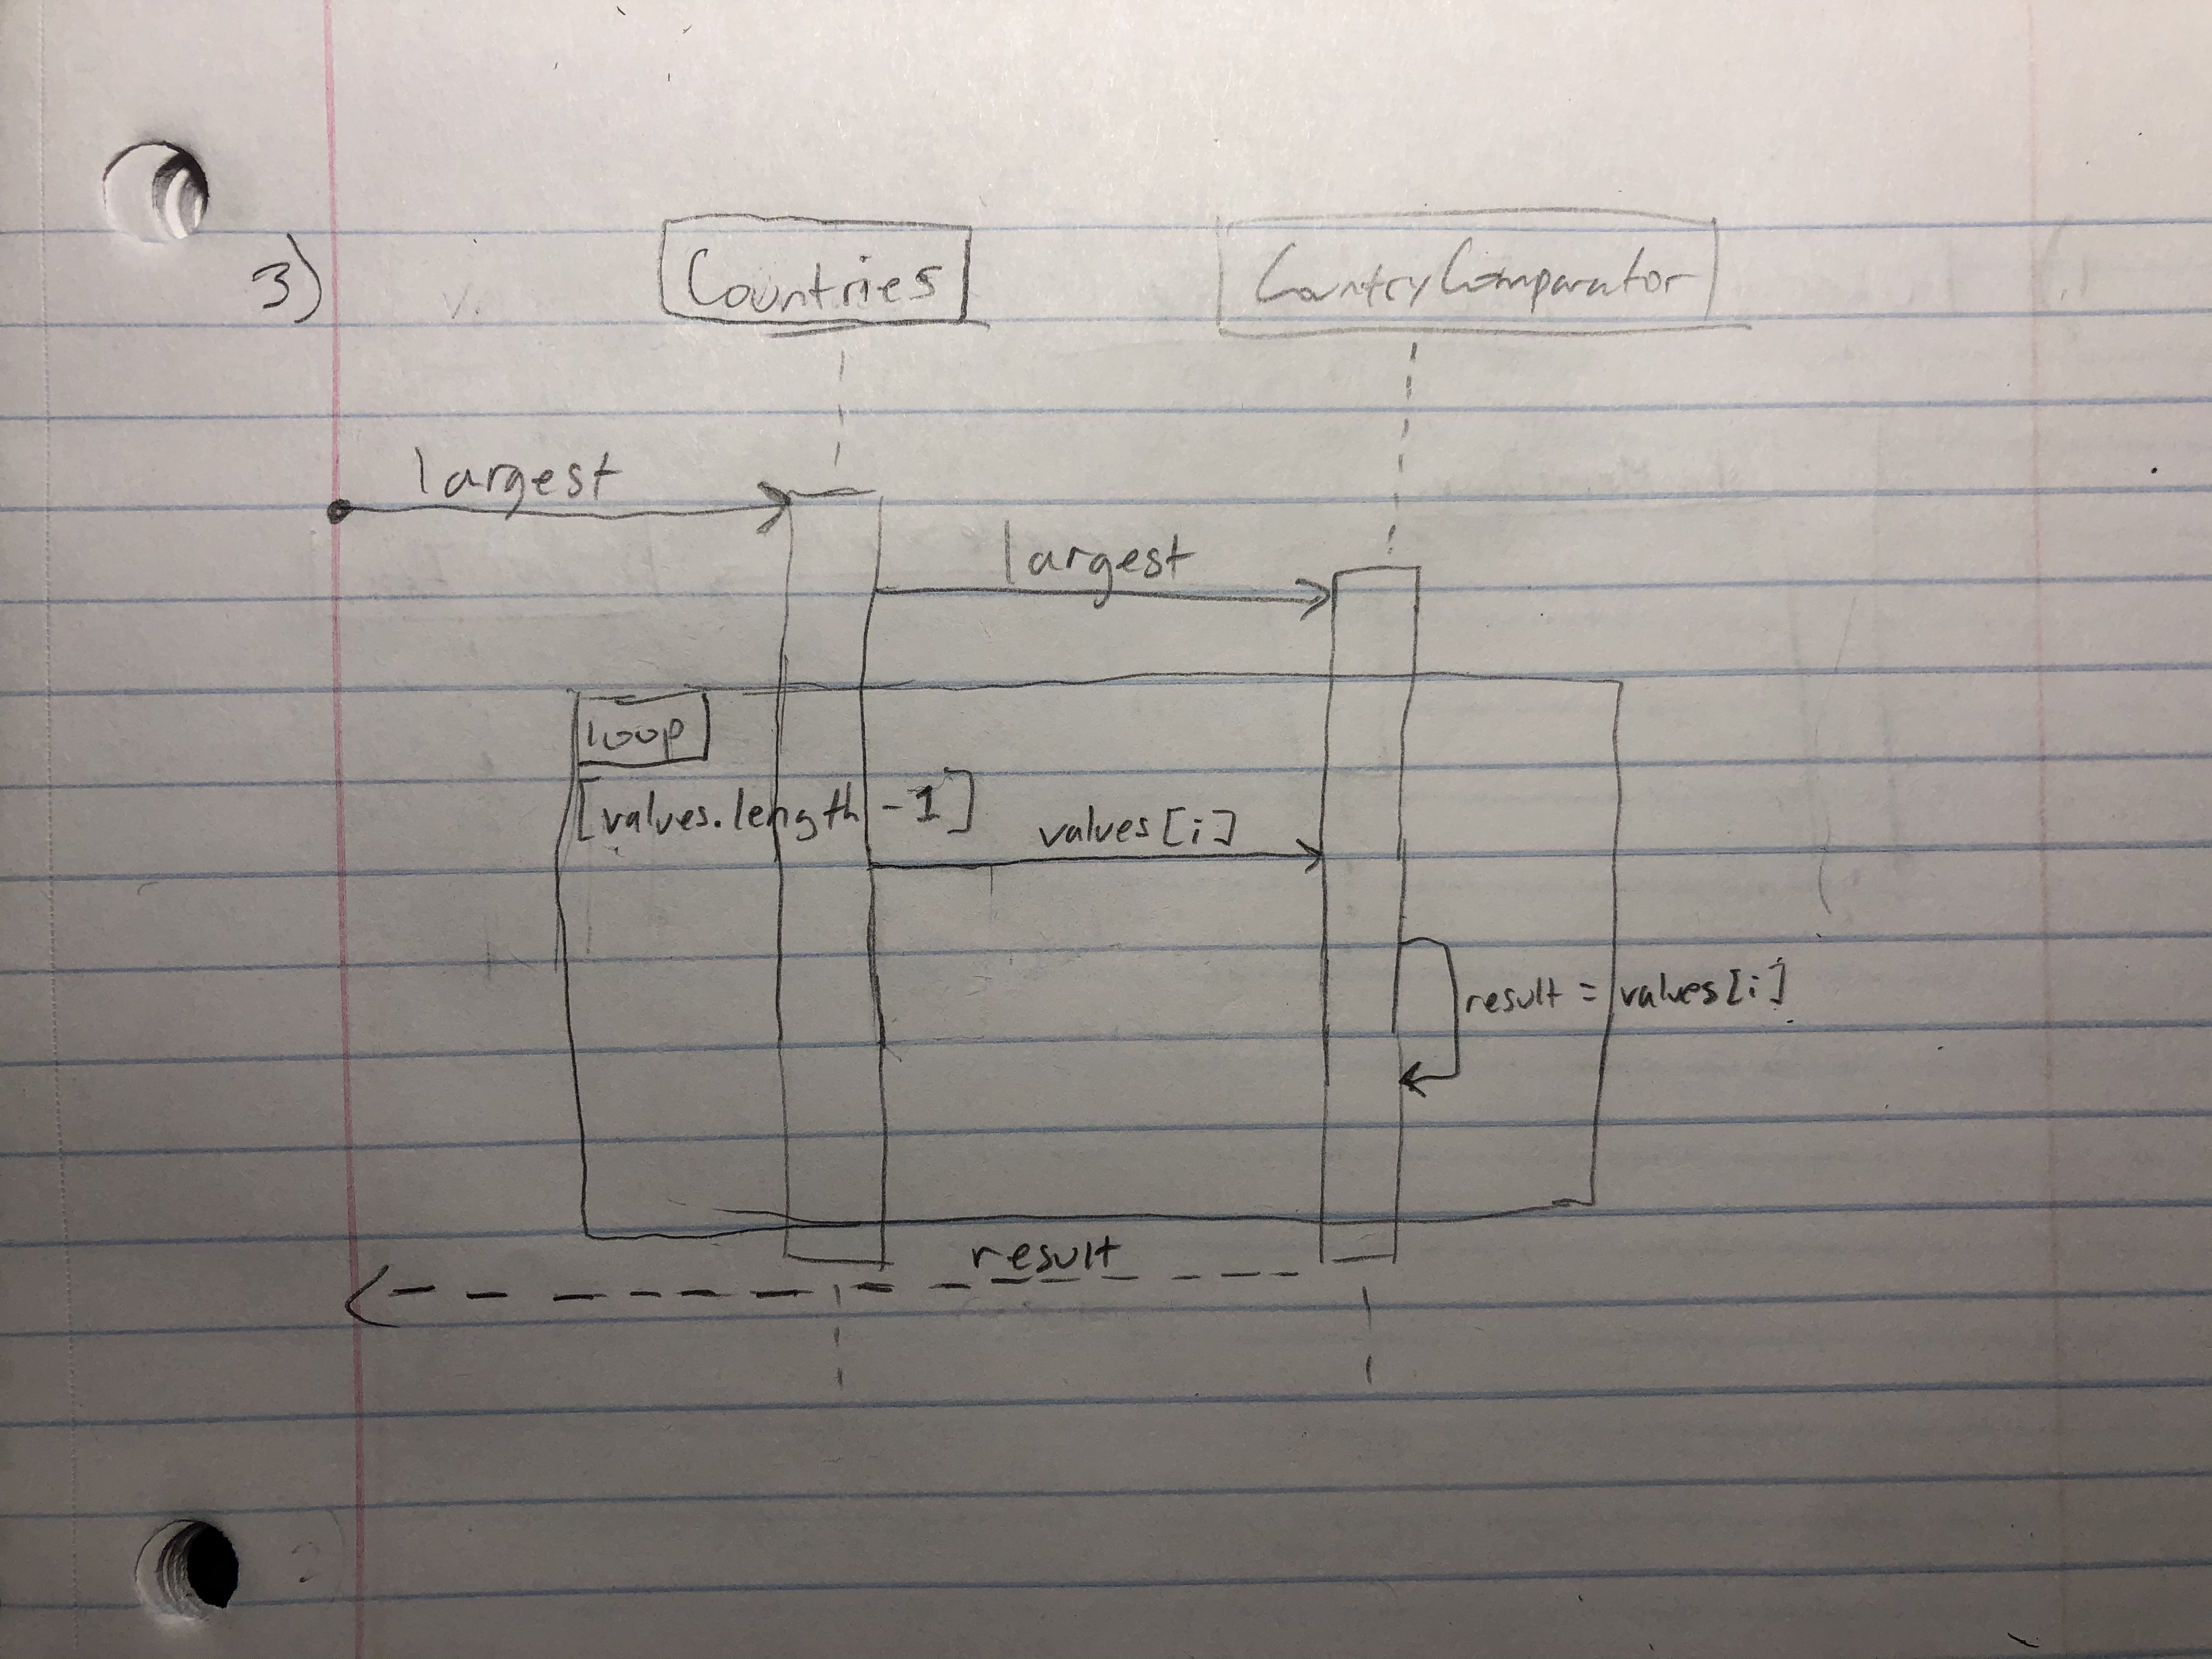 3)
Countries
CountryComparator
largest
largest
loop
[values.length - 1]
values[i]
result = values[i]
result